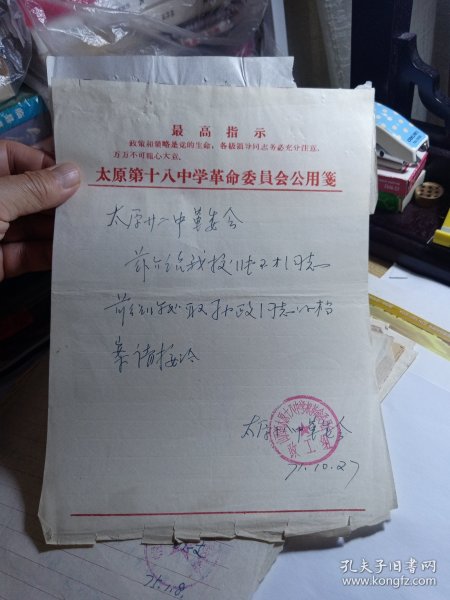 最高指示
政策和策略是党的生命,各级领导同志务必充分注意,
万万不可粗心大意。
太原第十八中学革命委員会公用箋
太原廿二中革委会
兹介绍我校 同志
前往 取 同志的档
案请接洽
太原十八中革委会
71.10.27
孔夫子旧书网
www.kongfz.com